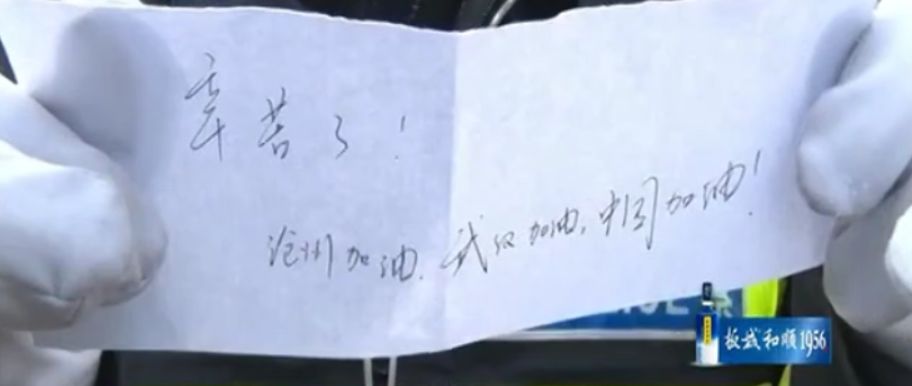 辛苦了！
沧州加油.武汉加油.中国加油！
板城和顺1956